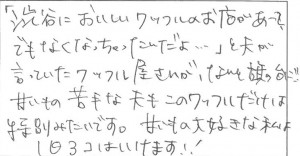 「渋谷においしいワッフルのお店があって
でもなくなっちゃったんだよ…」と夫が
言っていたワッフル屋さんが、なんと旗の台に!!
甘いもの苦手な夫もこのワッフルだけは
特別みたいです。甘いもの大好きな私は
1日3コはいけます!!